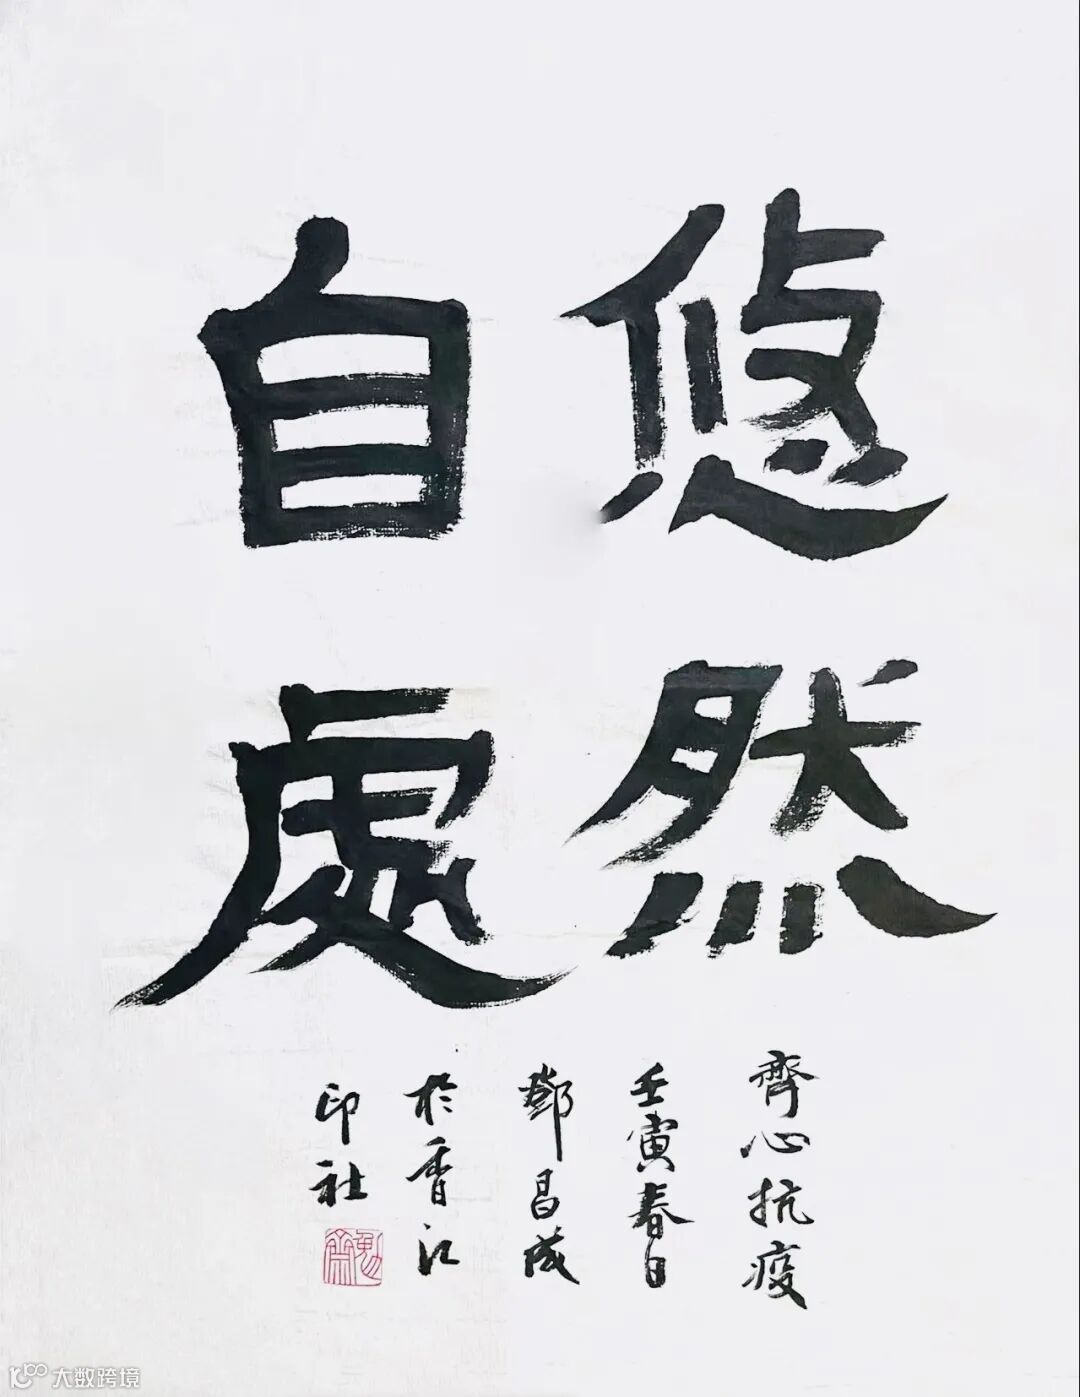 悠然
自處
齊心抗疫
壬寅春日
鄧昌成
於香江
印社
大数跨境